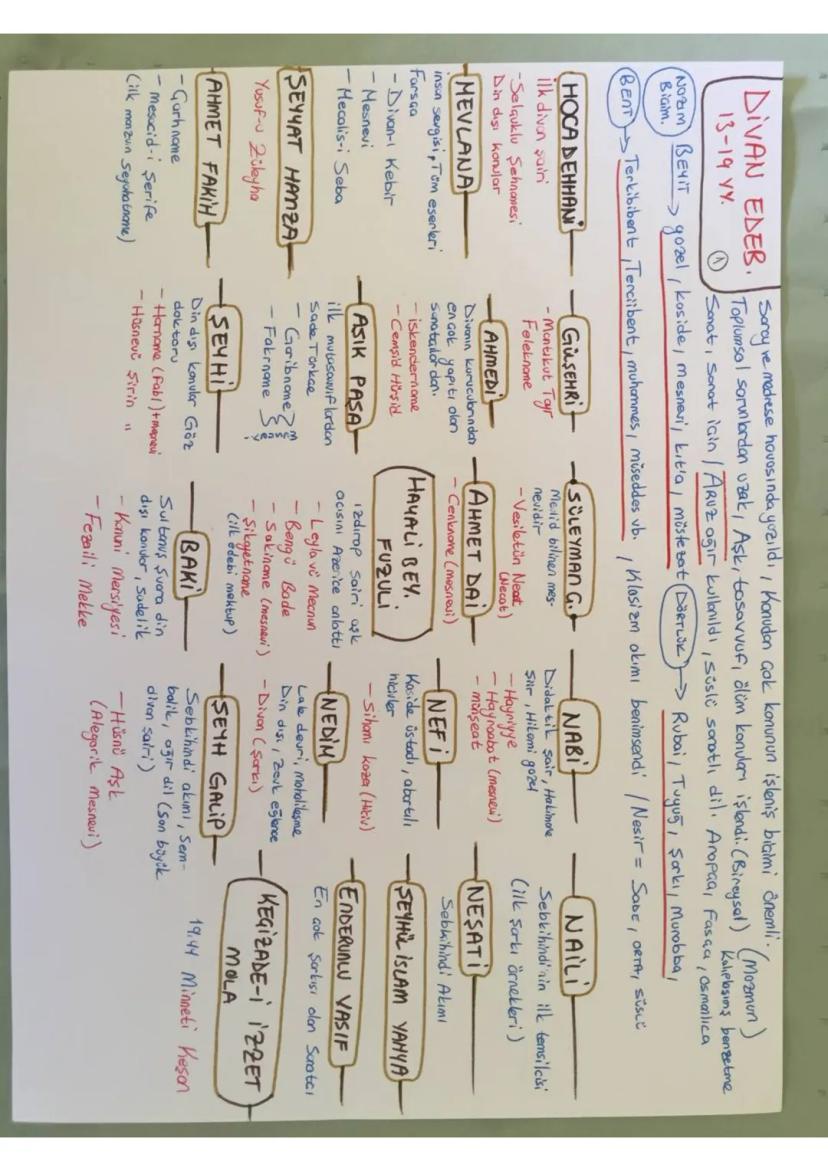 DİVAN EDEB.
13-19 yy.
1
Saray ve medrese havasında yazıldı, Konudan çok konunun işleniş biçimi önemli.
Toplumsal sorunlardan uzak, Aşk, tasavvuf, ölüm konuları işlendi. (Bireysel) (Mazmun)
Kalıplaşmış benzetme
Sanat, Sanat için / ARUZ ağır kullanıldı, süslü sanatlı dil. Arapça, Fasça, Osmanlıca
NAZIM Biçim.
BEYİT → gazel, kaside, mesnevi, kıt'a, müstezat DÖRTLÜK → Rubai, Tuyuğ, şarkı, Murabba,
BENT → Terkibibent, Terciibent, muhammes, müseddes vb. / Klasizm akımı benimsendi / Nesir = SADE, ORTA, SÜSLÜ
HOCA DEHHANİ
ilk divan şairi
- Selçuklu Şehnamesi
Din dışı konular
MEVLANA
insan sevgisi, Tüm eserleri
Farsça
- Divan-ı Kebir
- Mesnevi
- Mecalis-i Seba
ŞEYYAT HAMZA
Yusuf-u Züleyha
AHMET FAKİH
- Çarhname
- Mesacid-i Şerife
(ilk manzum Seyahatname)
GÜLŞEHRİ
- Mantıkut Tayr
Felekname
AHMEDİ
Divanın kurucularından
en çok yapıtı olan
sanatçılardan.
- iskendername
- Cemşid Hürşid
AŞIK PAŞA
ilk mutasavvıflardan
sade Türkçe
- Garibname
- Fakrname
mesnevi
ŞEYHİ
Din dışı konular Göz
doktoru
- Harname (Fabl)+mesnevi
- Hüsnevü Şirin "
SÜLEYMAN Ç.
Mevlid bilinen mes-
nevidir
- Vesiletün Necat
(Necat)
AHMET DAİ
- Cenkname (mesnevi)
HAYALİ BEY.
FUZULİ
ızdırap şairi aşk
acısını Azerice anlattı
- Leyla vü Mecnun
- Bengü Bade
- Sakiname (mesnevi)
- Şikayetname
(ilk edebi mektup)
BAKİ
Sultanuş Şuara din
dışı konular, sadelik
- Kanuni Mersiyesi
- Fezaili Mekke
NABİ
Didaktik şair, Hakimane
şiir, Hikemi gazel
- Hayriyye
- Hayrabat (mesnevi)
- münşeat
NEFİ
Kaside üstadı, abartılı
hicivler
- Sihamı kaza (Hiciv)
NEDİM
Lale devri, mahallileşme
Din dışı, zevk eğlence
- Divan (şarkı)
ŞEYH GALİP
Sebkihindi akımı, sem-
bolik, ağır dil (Son büyük
divan şairi)
- Hüsnü Aşk
(Alegorik mesnevi)
NAİLİ
Sebkihindi'nin ilk temsilcisi
(ilk şarkı örnekleri)
NEŞATİ
Sebkihindi Akımı
ŞEYHÜLİSLAM YAHYA
ENDERUNLU VASIF
En çok şarkısı olan Sanatçı
KEÇİZADE-İ İZZET
MOLA
19.yy Minneti Keşan